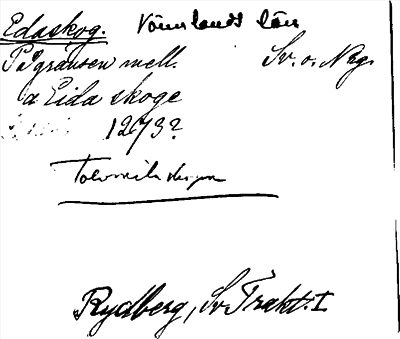 Edaskog. Värmlands län
På gränsen mell. Sv. o. Nrg.
a Eida skoge
1273?
Tolvmilaskogen
Rydberg, Sv. Trakt. I